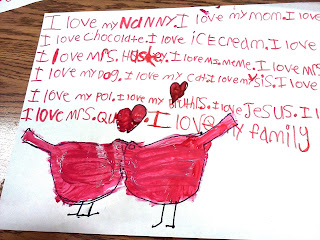 I love my NANNY. I love my mom. I love
I love Chocolate. I love iCE cream. I love
I love MRS. I love ms. meme. I love MRS
I love my Dog. I love my Cat. I love my Sis. I love
I love my Pol. I love my I love Jesus. I
I love MRS. I love my family